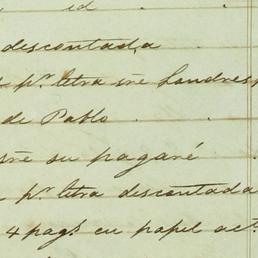 id
descontada
pr. letra sre Londres
de Pablo
sre su pagaré
pr. letra descontada
4 pags. en papel act.